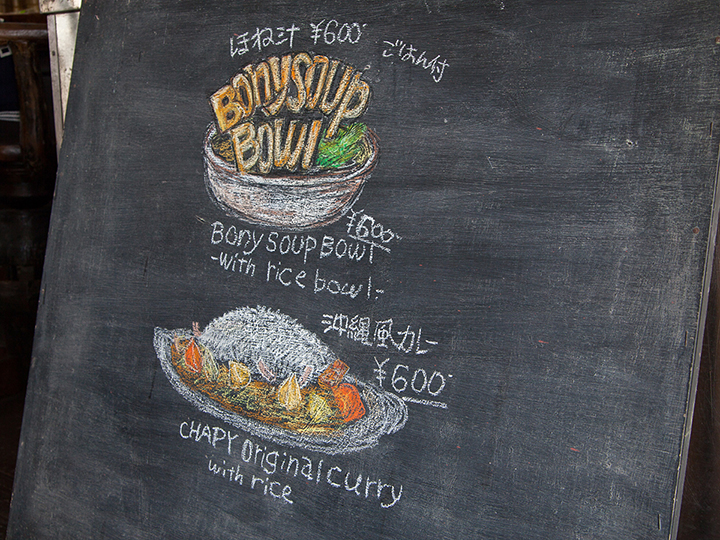 ほね汁 ¥600- ごはん付
BONY SOUP
BOWl
¥600-
BONY SOUP BOWl
-with rice bowl-
沖縄風カレー
¥600-
CHAPY Original curry
with rice